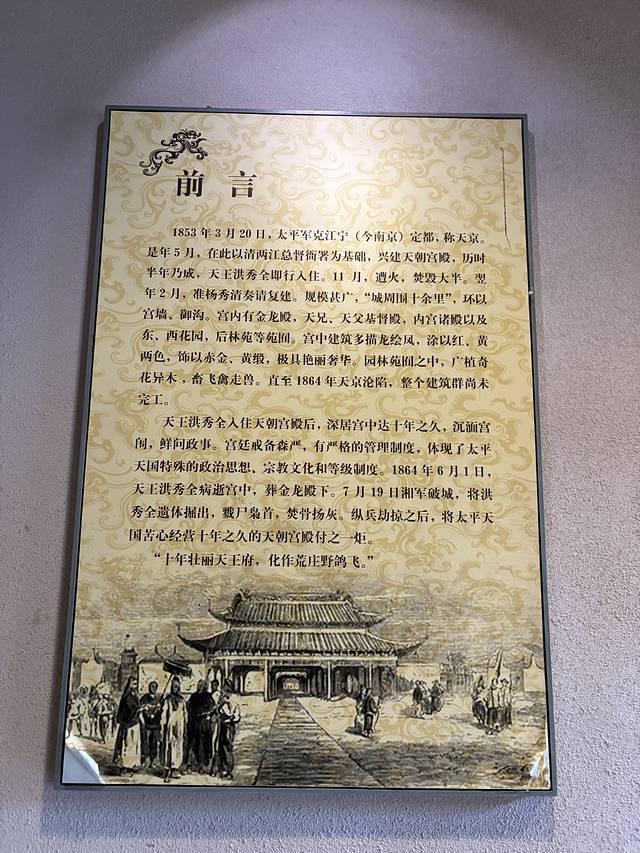 前言
1853年3月20日，太平军克江宁（今南京）定都，称天京。
是年5月，在此以清两江总督衙署为基础，兴建天朝宫殿，历时
半年乃成，天王洪秀全即行入住。11月，遭火，焚毁大半。翌
年2月，准杨秀清奏请复建。规模甚广，“城周围十余里”，环以
宫墙、御沟。宫内有金龙殿，天兄、天父基督殿，内宫诸殿以及
东、西花园，后林苑等苑囿。宫中建筑多描龙绘凤，涂以红、黄
两色，饰以赤金、黄缎，极具艳丽奢华。园林苑囿之中，广植奇
花异木，畜飞禽走兽。直至1864年天京沦陷，整个建筑群尚未
完工。
天王洪秀全入住天朝宫殿后，深居宫中达十年之久，沉湎宫
闱，鲜问政事。宫廷戒备森严，有严格的管理制度，体现了太平
天国特殊的政治思想，宗教文化和等级制度。1864年6月1日，
天王洪秀全病逝宫中，葬金龙殿下。7月19日湘军破城，将洪
秀全遗体掘出，戮尸枭首，焚骨扬灰。纵兵劫掠之后，将太平天
国苦心经营十年之久的天朝宫殿付之一炬。
“十年壮丽天王府，化作荒庄野鸽飞。”